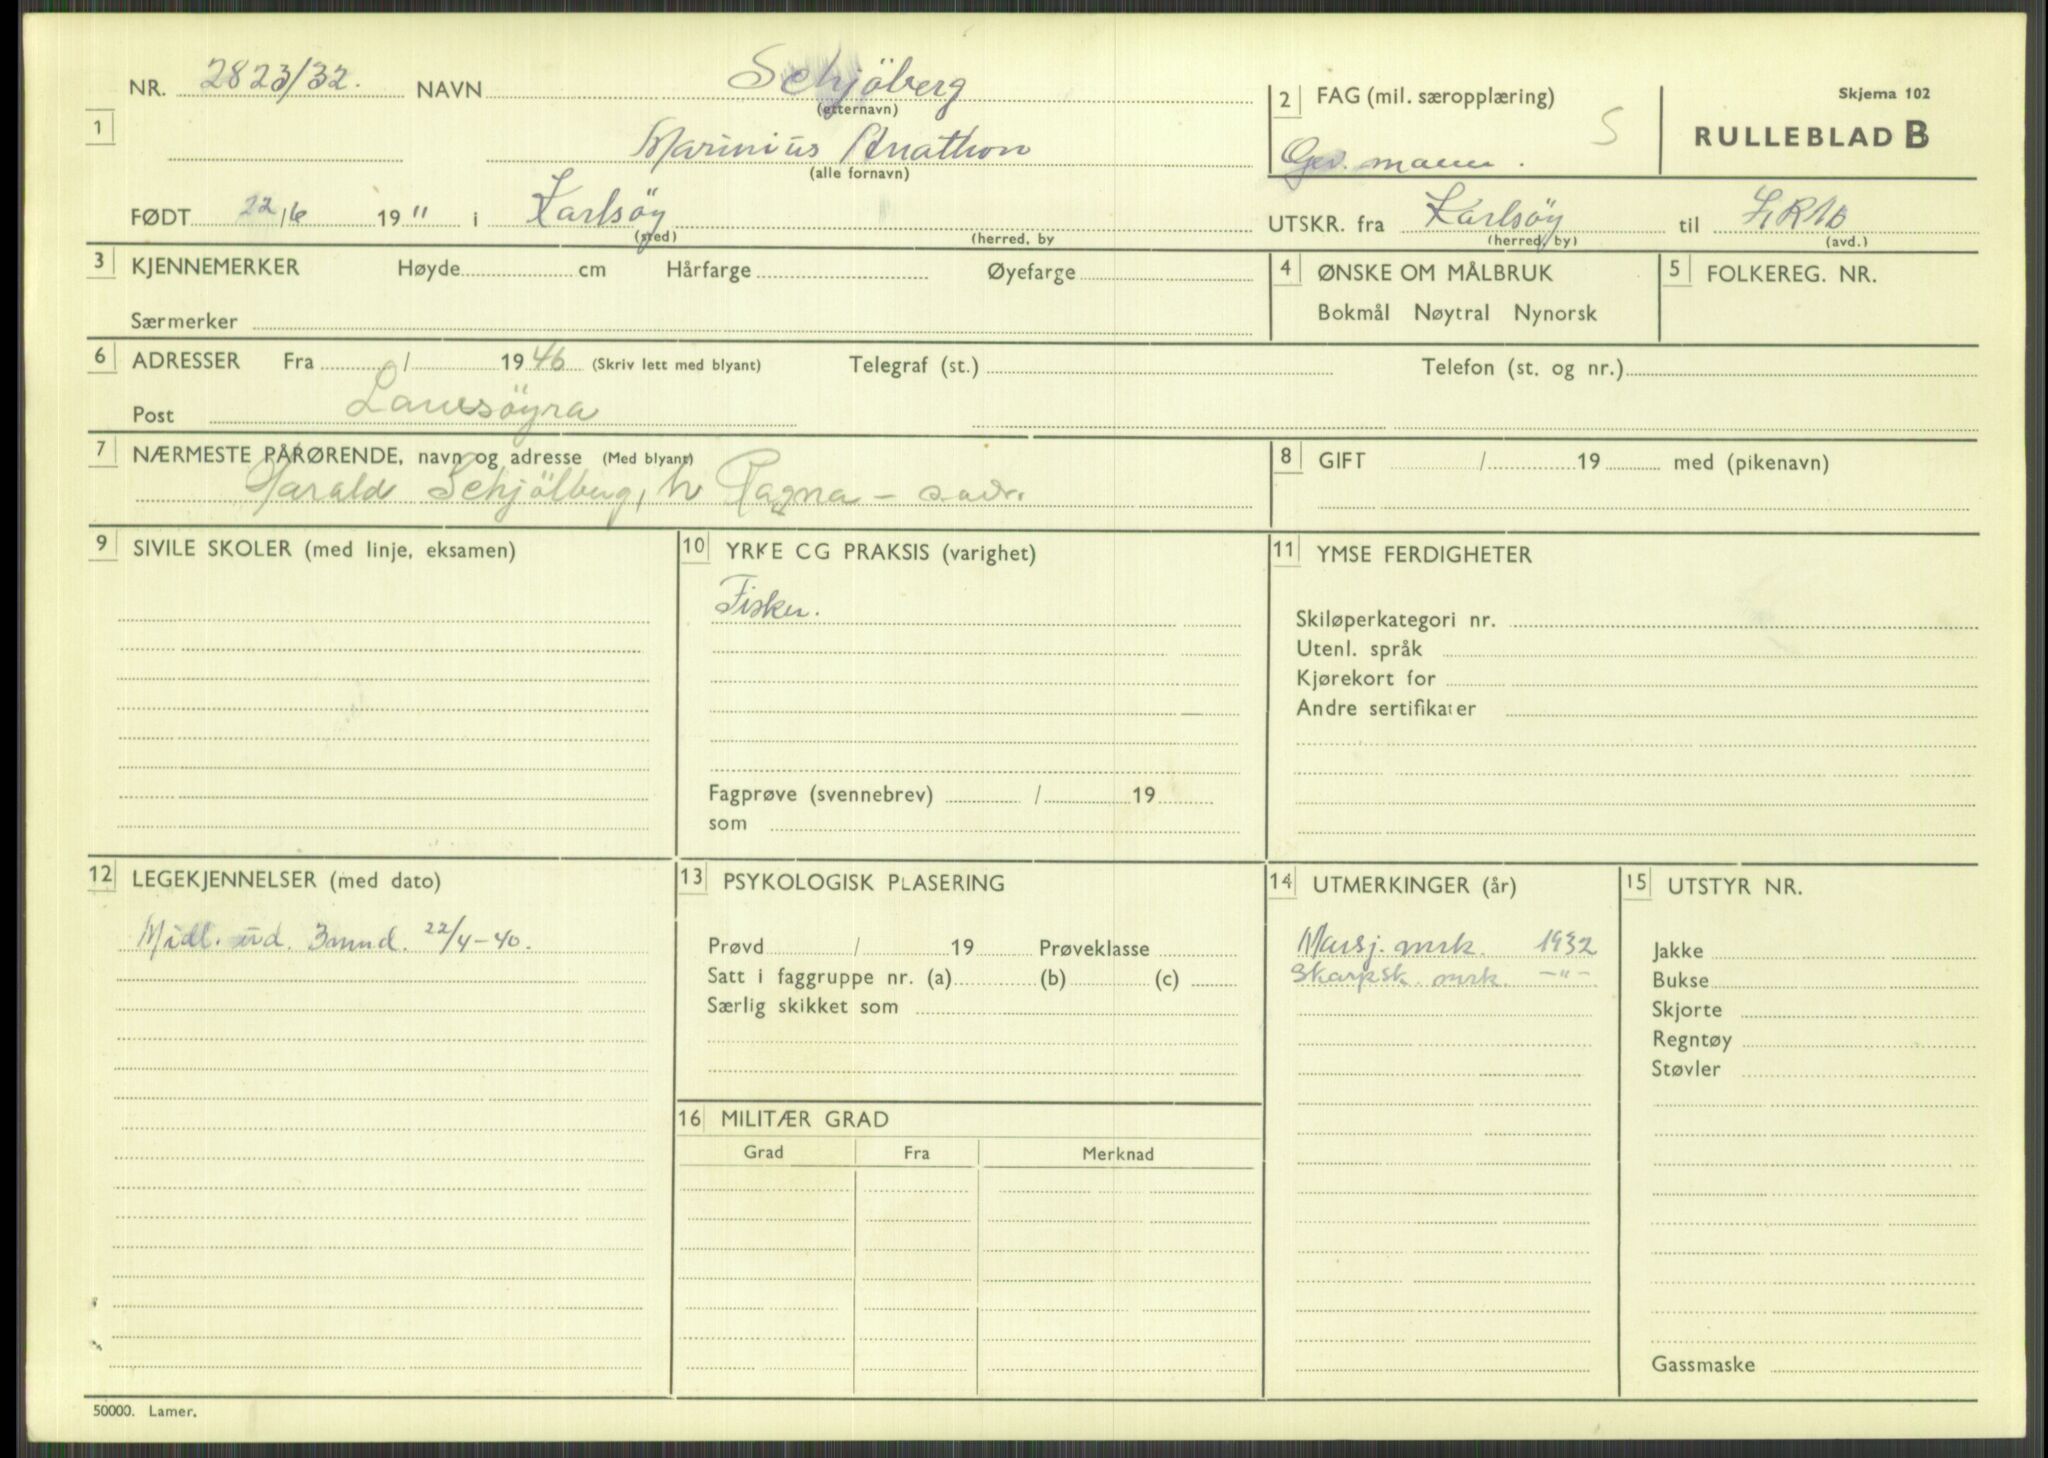 Skjema 102
RULLEBLAD B
NR. 2823/32. NAVN Schjöberg
(etternavn)
1 Marinius Anathon
(alle fornavn)
FØDT 22/6 19 11 i Karlsöy
(sted) (herred, by
2 FAG (mil. særopplæring) S
Gev. mann.
UTSKR. fra Karlsöy til
(herred, by) (avd.)
3 KJENNEMERKER Høyde cm Hårfarge Øyefarge
Særmerker
4 ØNSKE OM MÅLBRUK
Bokmål Nøytral Nynorsk
5 FOLKEREG. NR.
6 ADRESSER Fra / 1946 (Skriv lett med blyant) Telegraf (st.) Telefon (st. og nr.)
Post
7 NÆRMESTE PÅRØRENDE, navn og adresse (Med blyant)
Harald Schjölberg, h Ragna - s. adr.
8 GIFT / 19 med (pikenavn)
9 SIVILE SKOLER (med linje, eksamen)
10 YRKE CG PRAKSIS (varighet)
Fisker.
Fagprøve (svennebrev) / 19
som
11 YMSE FERDIGHETER
Skiløperkategori nr.
Utenl. språk
Kjørekort for
Andre sertifikater
12 LEGEKJENNELSER (med dato)
Midl. ud. 3 mnd. 22/4-40.
13 PSYKOLOGISK PLASERING
Prøvd / 19 Prøveklasse
Satt i faggruppe nr. (a) (b) (c)
Særlig skikket som
14 UTMERKINGER (år)
Marsj. mrk. 1932
Skarpsk. mrk. -"-
15 UTSTYR NR.
Jakke
Bukse
Skjorte
Regntøy
Støvler
Gassmaske
16 MILITÆR GRAD
Grad Fra Merknad
50000. Lamer.